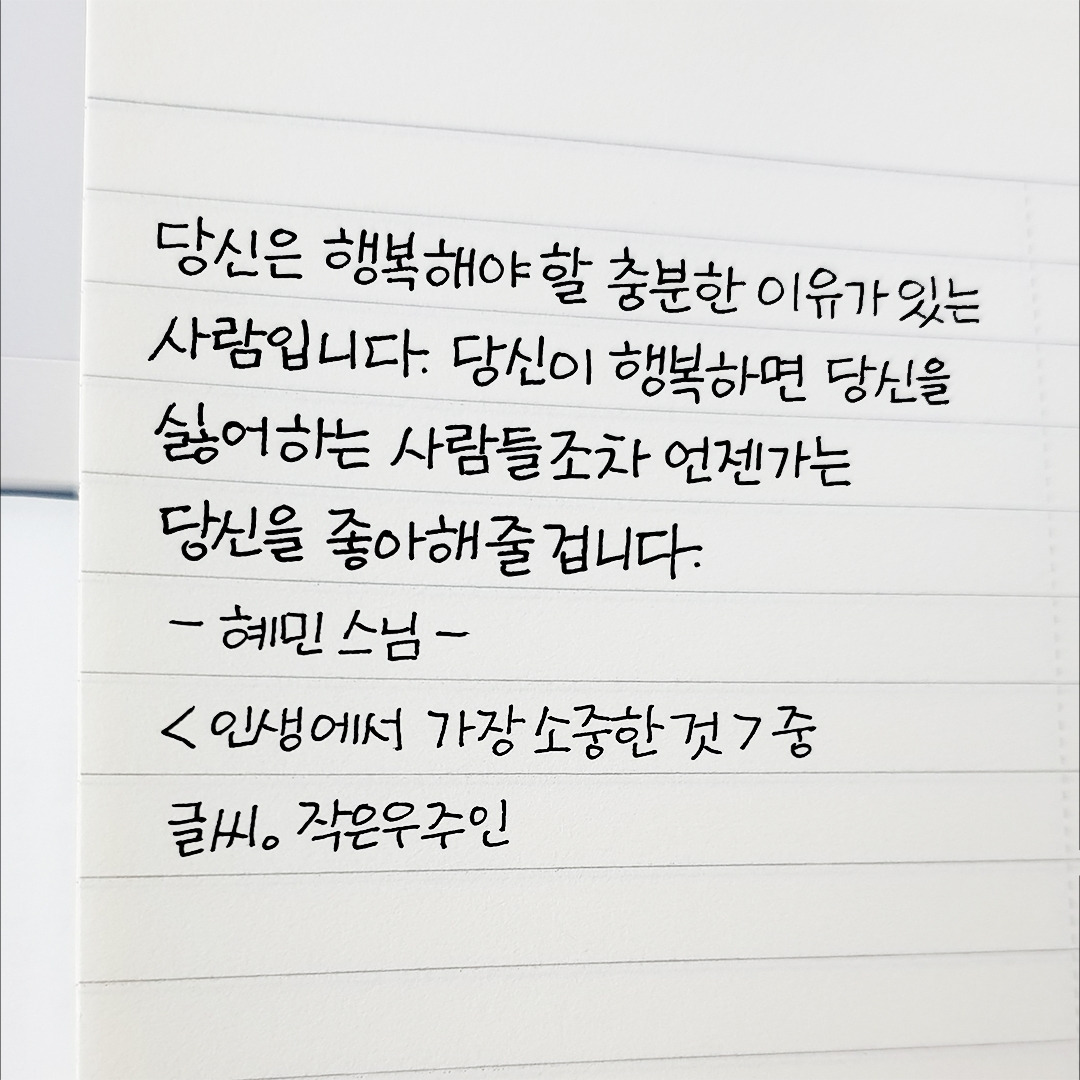 당신은 행복해야 할 충분한 이유가 있는
사람입니다. 당신이 행복하면 당신을
싫어하는 사람들조차 언젠가는
당신을 좋아해줄 겁니다.
- 혜민 스님 -
<인생에서 가장 소중한 것> 중
글씨。작은우주인